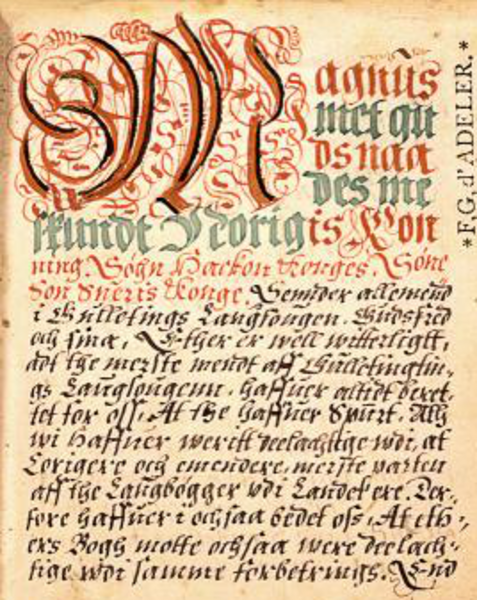 Magnus
met gu
ds naa
des me
skundt Norigis Kon
ning. Söhn Hackon Konges. Söne
Son Sueris Konge. Sennder allemend
i Gulletings Laugsougen. Gudsfred
och sina, Ether er well witterligtt,
adt the merste mendt aff Gulletingßin-
gs Laugsougenn. haffuer altidt beret-
tet for oss. At the haffuer Spurt. Att
wi haffuer weritt deelachtige wdi, at
Corigere och emendere. merste parten
aff the Laugbögger vdi Landet ere. Der-
fore haffuer i ochsaa bedet oss. At eth-
ers Bogh motte ochsaa were deelach-
tige wdi samme forbetrings. End
*F.G. d'ADELER.*